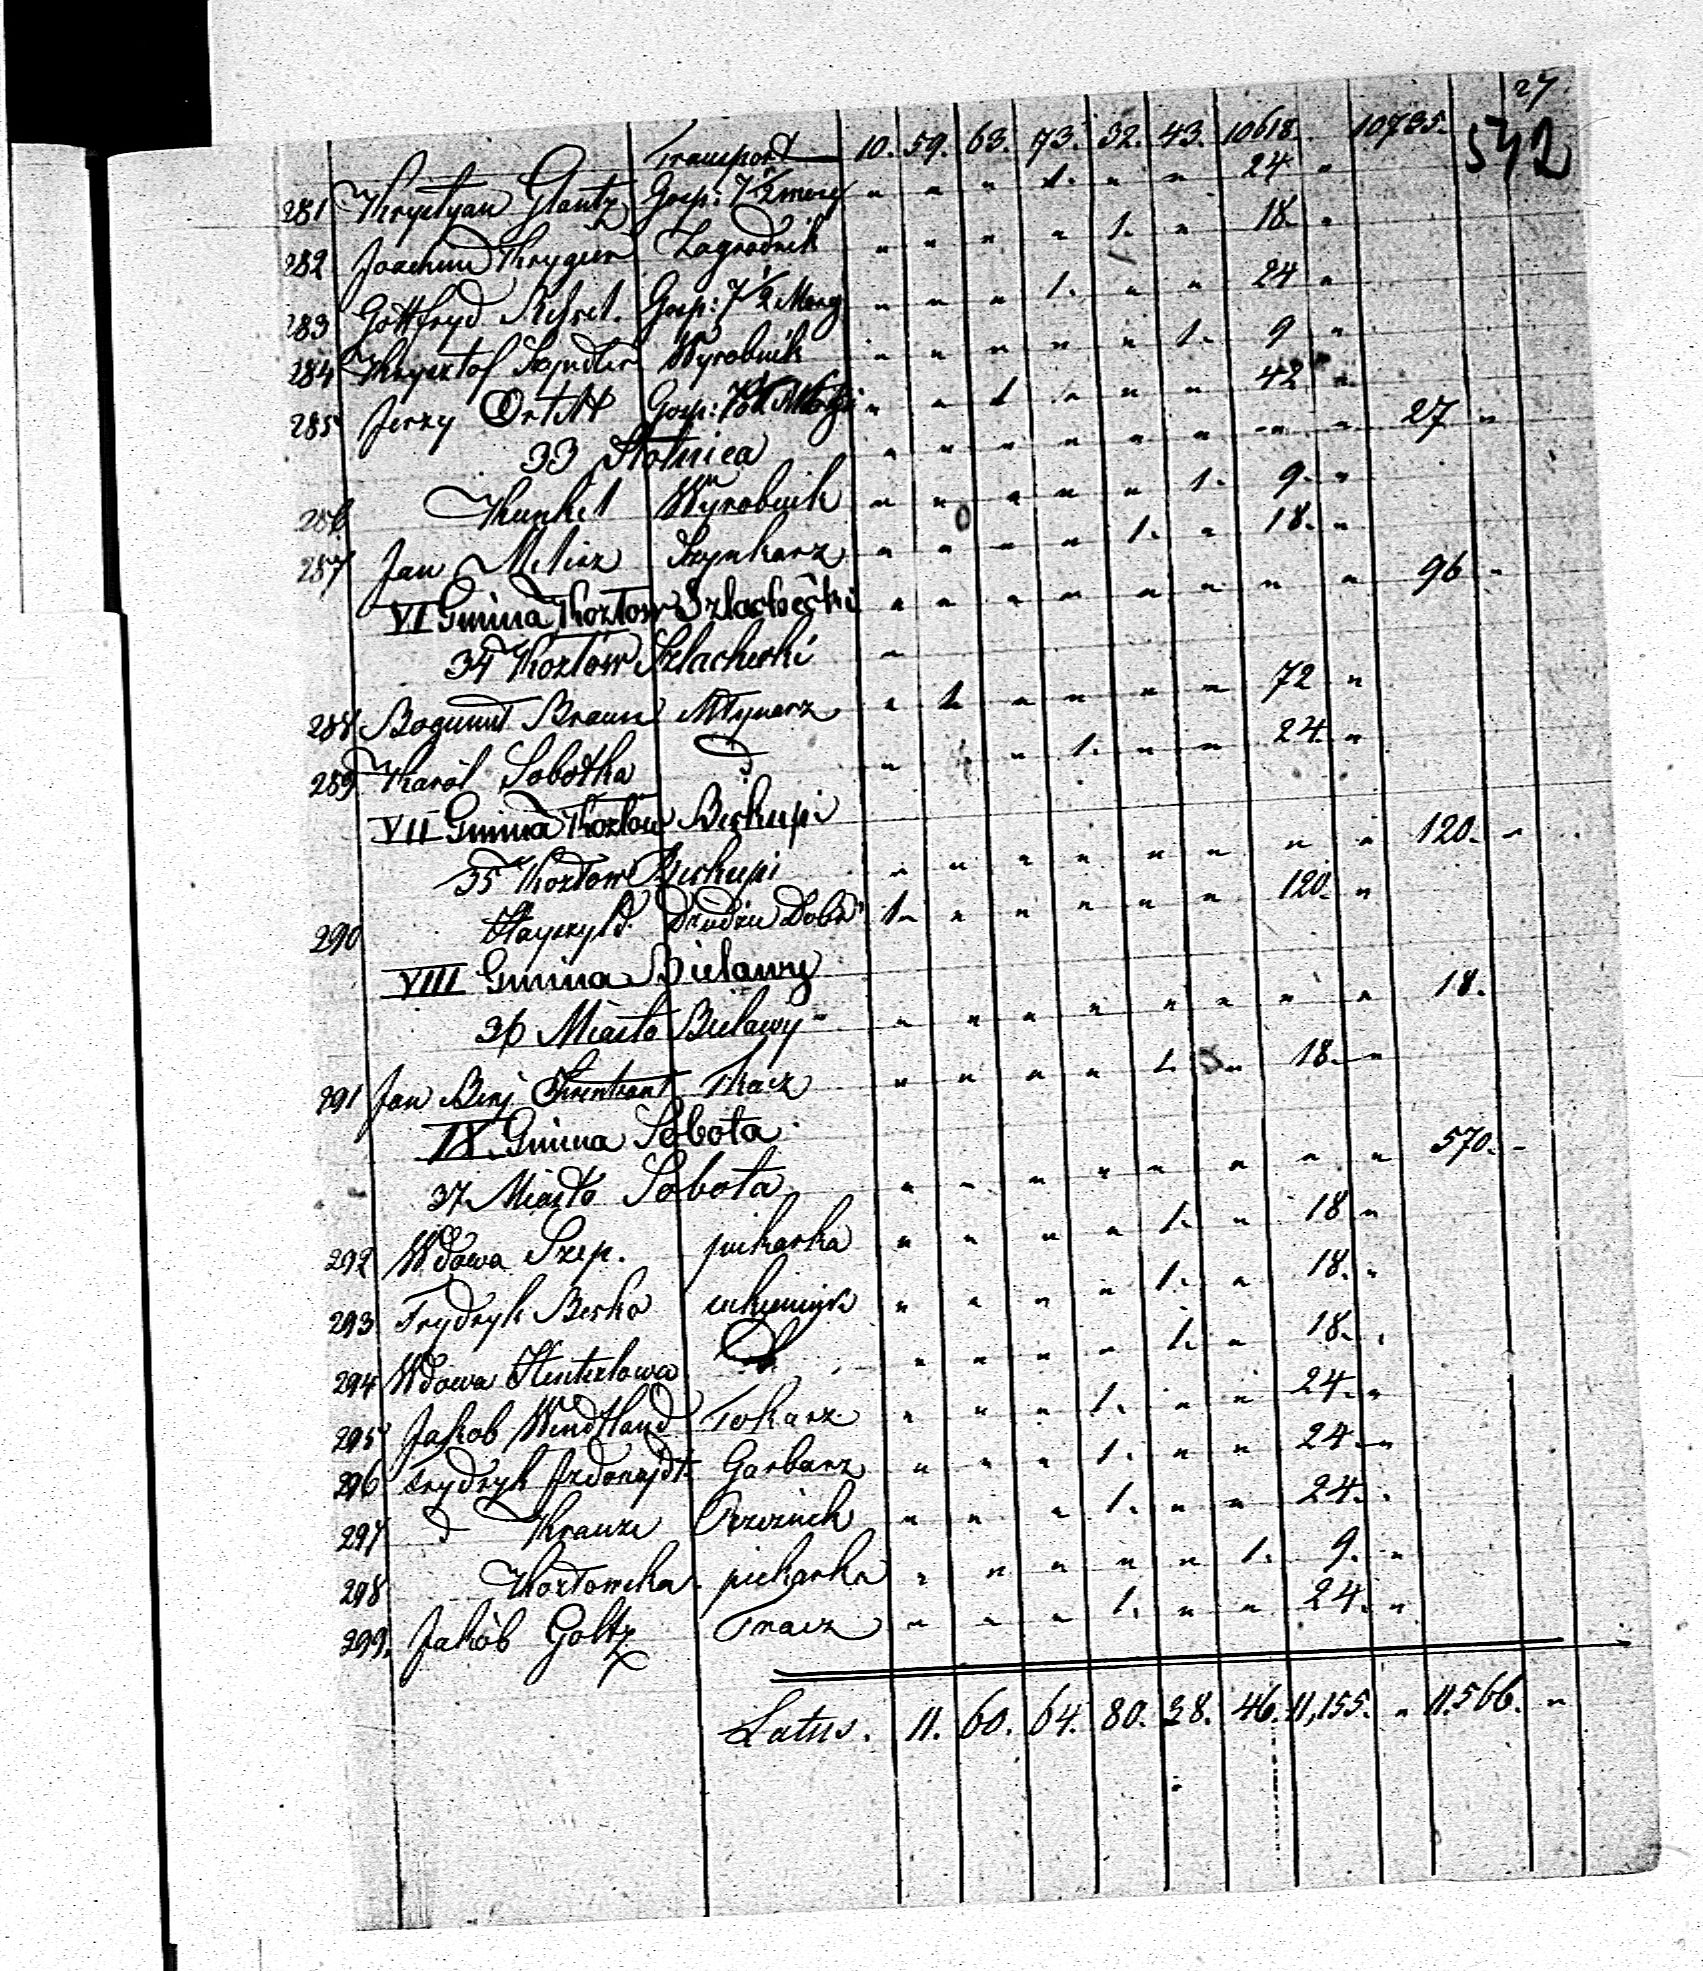 27
542
Transport 10. 59. 63. 73. 32. 43. 10618. 10735.
281 Krystyan Glantz Gosp: 7 1/2 morg " " " 1. " " 24 "
282 Joachim Krygier Zagrodnik " " " " 1. " 18. "
283 Gottfryd Gosp: 7 1/2 Morg " " " 1. " " 24 "
284 Krysztof Szyndler Wyrobnik " " " " " 1. 9 "
285 Jerzy Ortlit Gosp: " " 1 " " " 42 "
33 Słotnica " " " " " " " " 27 "
286 Kunkel Wyrobnik " " " " " 1. 9. "
287 Jan Melisz Szynkarz " " " " 1. " 18. "
VI Gmina Kozłow Szlachecki " " " " " " " " 96 "
34 Kozłow Szlachecki "
288 Bogumił Braun Młynarz " 1. " " " " 72 "
289 Karól Sobotka d " " 1. " " 24. "
VII Gmina Kozłow Biskupi
35 Kozłow Biskupi " " " " " " " " 120. "
290 Dobr 1. " " " " " 120. "
VIII Gmina Bielawy
36 Miasto Bielawy " " " " " " " " 18.
291 Jan Benj Tkacz " " " " 1. " 18. "
IX Gmina Sobota
37 Miasto Sobota " " " " " " " " 570. "
292 Wdowa Szep. piekarka " " " " 1. " 18 "
293 Frydryk Beska sukiennik " " " " 1. " 18. "
294 Wdowa Hentzlowa d " " " " 1. " 18. "
295 Jakob Windtland Tokarz " " " 1. " " 24. "
296 Frydryk Garbarz " " " 1. " " 24. "
297 d Krauze Rzeznick " " " 1. " " 24. "
298 Kozłowska piekarka " " " " " 1. 9. "
299. Jakób Goltz Tracz " " " 1. " " 24. "
Latus. 11. 60. 64. 80. 38. 46. 11,155. " 11.566. "